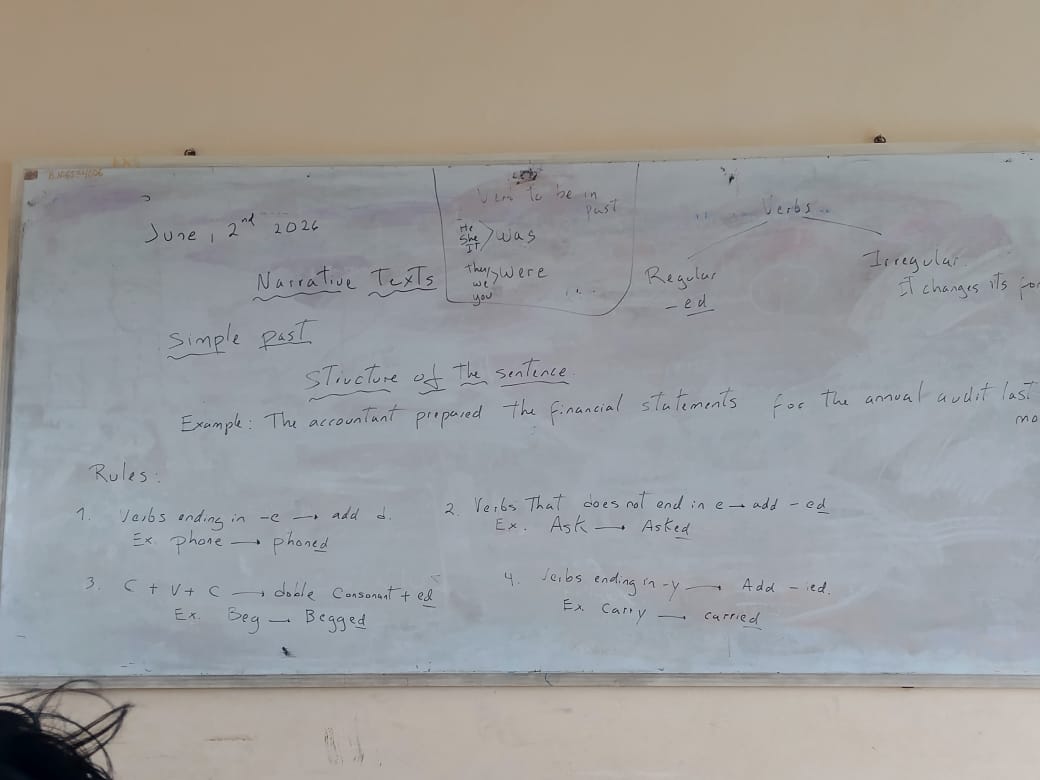 June, 2nd 2026
Narrative Texts
Verb to be in
past
He
She
It
was
They
we
you
were
....
Verbs
Regular
- ed
Irregular
It changes its
Simple past
Structure of the sentence
Example: The accountant prepared the financial statements for the annual audit last
Rules:
1. Verbs ending in -e → add d.
Ex. phone → phoned
2. Verbs That does not end in e → add - ed
Ex. Ask → Asked
3. C + V + C → doble Consonant + ed
Ex. Beg → Begged
4. Verbs ending in -y → Add - ied.
Ex. Carry → carried